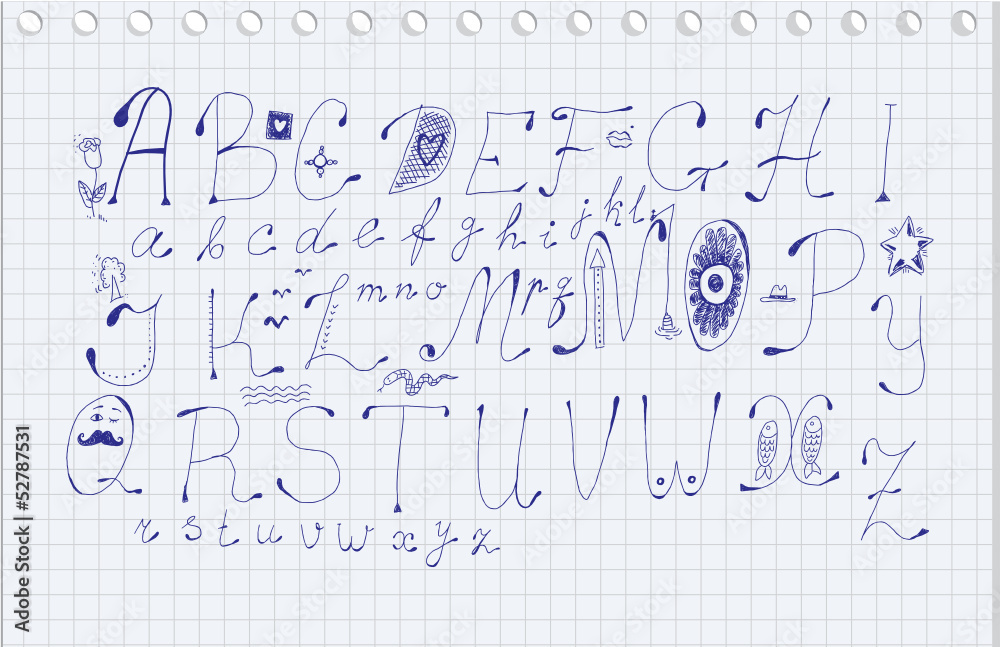 A B C D E F G H I
a b c d e f g h i j k l
J K L m n o M p q N O P Y
Q R S T U V W X Z
r s t u v w x y z
Adobe Stock | #52787531